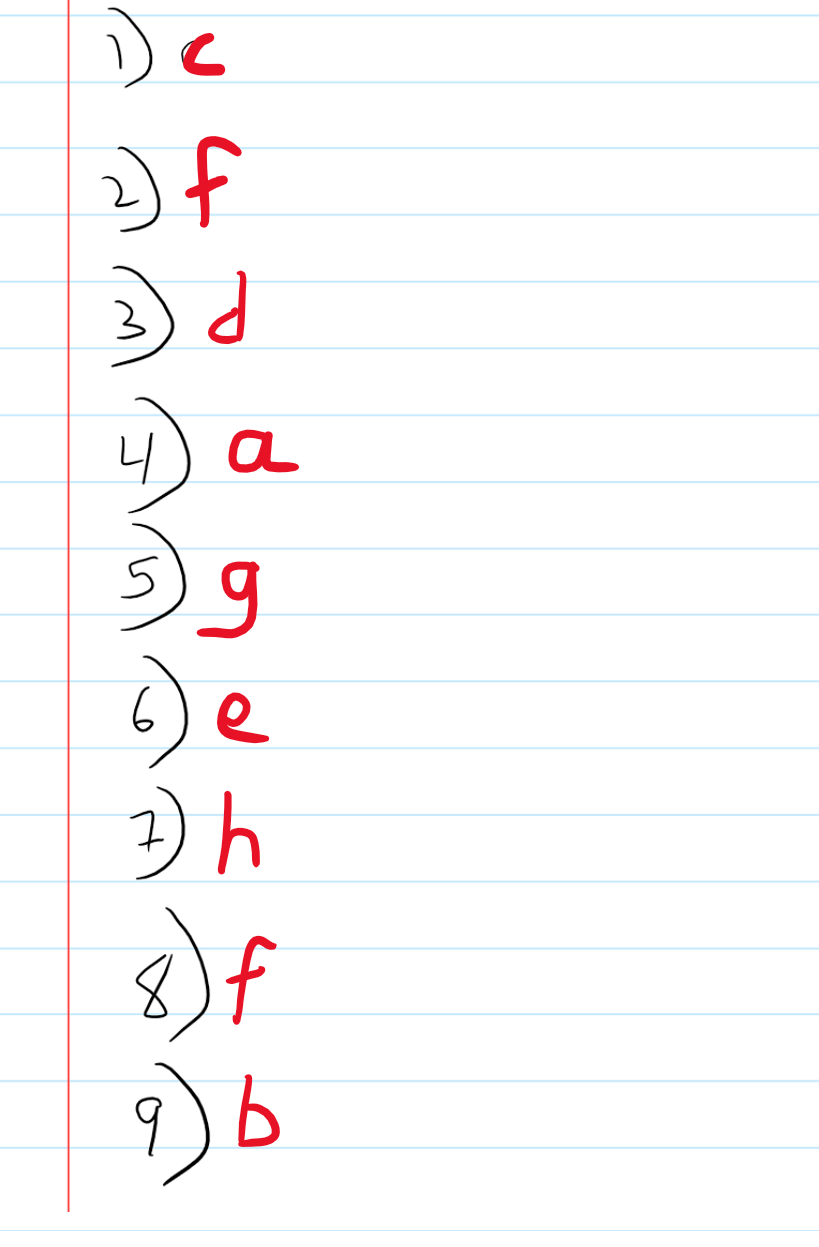 1) c
2) f
3) d
4) a
5) g
6) e
7) h
8) f
9) b